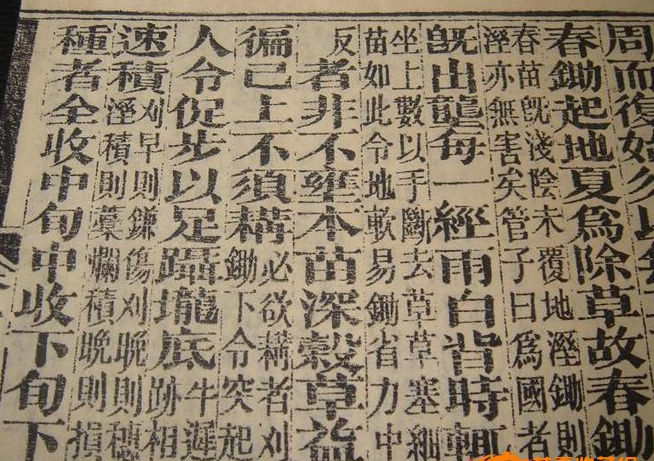 周而復始勿以無
春鋤起地夏爲除草故春鋤
春苗旣淺陰未覆地溼鋤則
溼亦無害矣管子曰爲國者
旣出壟每一經雨白背時輒
坐上數以手斷去草草塞細
苗如此令地軟易鋤省力中
反者非不壅本苗深穀草益
徧已上不須構
必欲耩者刈
鋤下令突起
人令促步以足躡壠底
牛遲
跡相
速積
刈早則鎌傷刈晚則穗
溼積則藁爛積晚則損
種者全收中旬中收下旬下